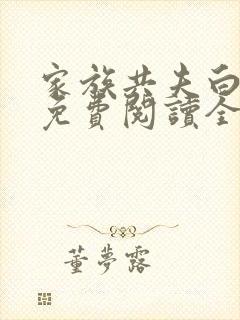 家族共夫白
免費閱讀全
董夢露